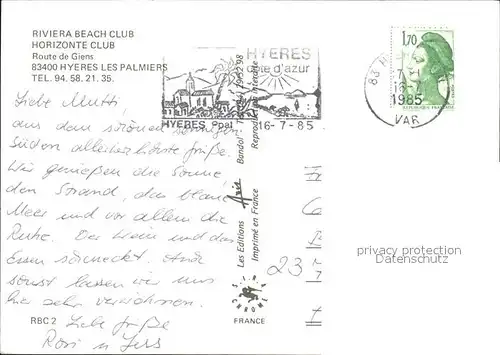 RIVIERA BEACH CLUB
HORIZONTE CLUB
Route de Giens
83400 HYERES LES PALMIERS
TEL. 94. 58. 21. 35.
Liebe Mutti,
aus dem schönen sonnigen
Süden allerherzlichste Grüße.
Wir genießen die Sonne,
den Strand, das blaue
Meer und vor allem die
Ruhe. Der Wein und das
Essen schmeckt. Und
sonst lassen wir uns
hier sehr verwöhnen.
Liebe Grüße
Rosi u. Jess
RBC 2
HYERES
côte d'azur
HYERES Ppal
16-7-85
Les Editions Aris Bandol
Imprimé en France
Reproduction interdite
FRANCE
1,70
83
16-7
1985
VAR
23
privacy protection
Datenschutz